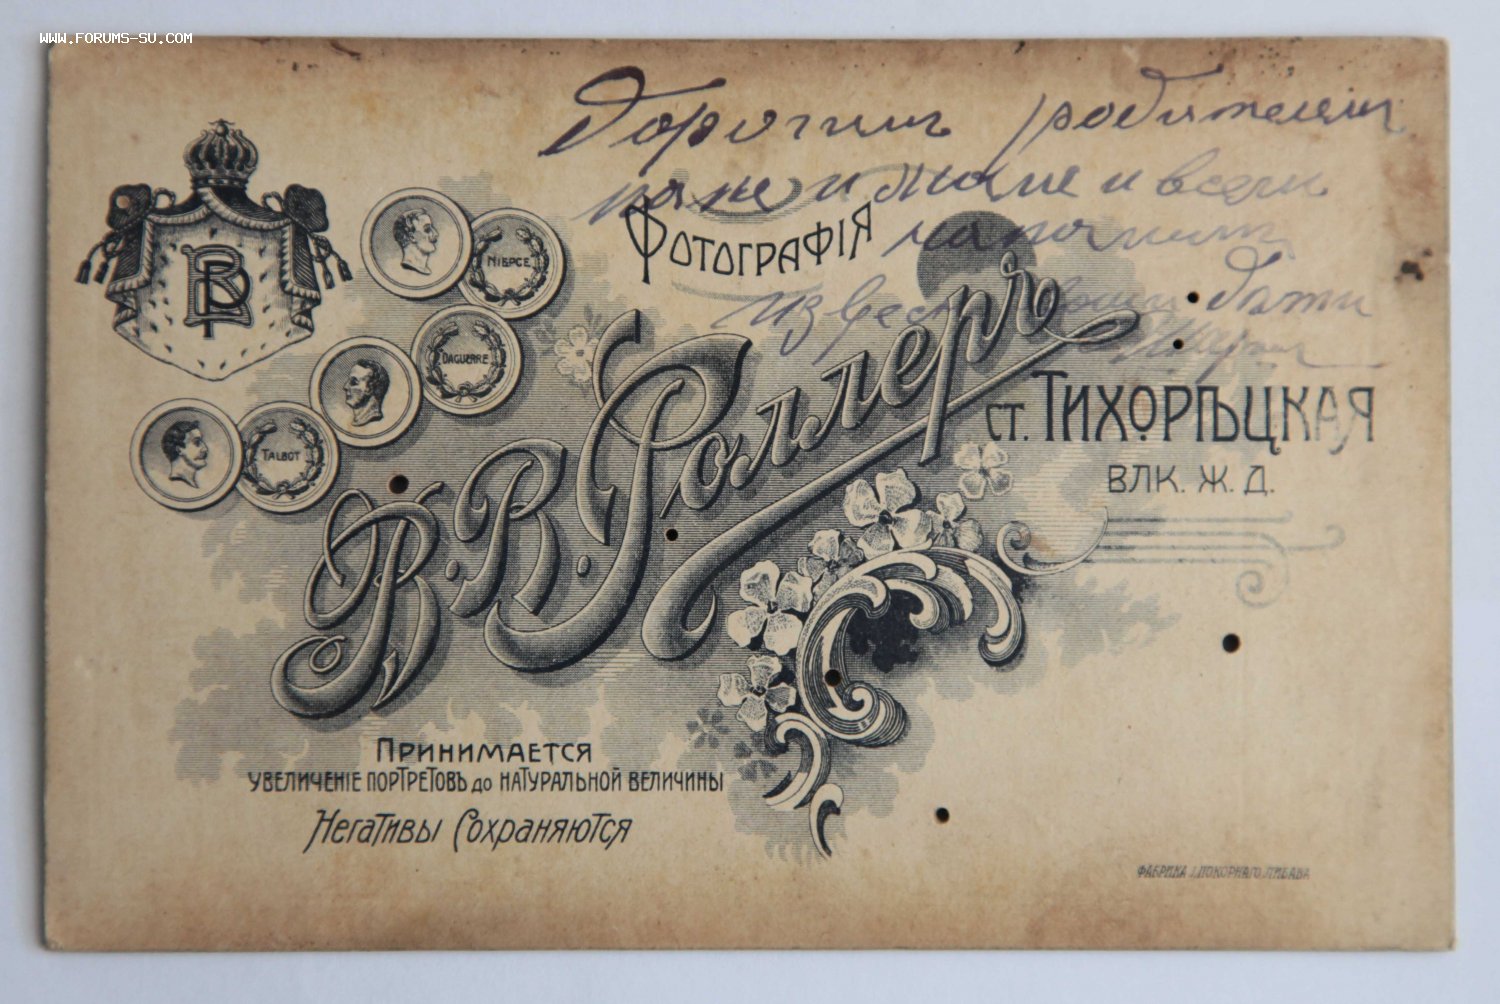 WWW.FORUMS-SU.COM
Дорогим родителям
папе и маме и всем
Фотографія
NIEPCE
DAGUERRE
TALBOT
В.В. Роллеръ
ст. Тихорѣцкая
ВЛК. Ж. Д.
Принимается
увеличеніе портретовъ до натуральной величины
Негативы Сохраняются
ФАБРИКА І. ПОКОРНАГО ЛИБАВА